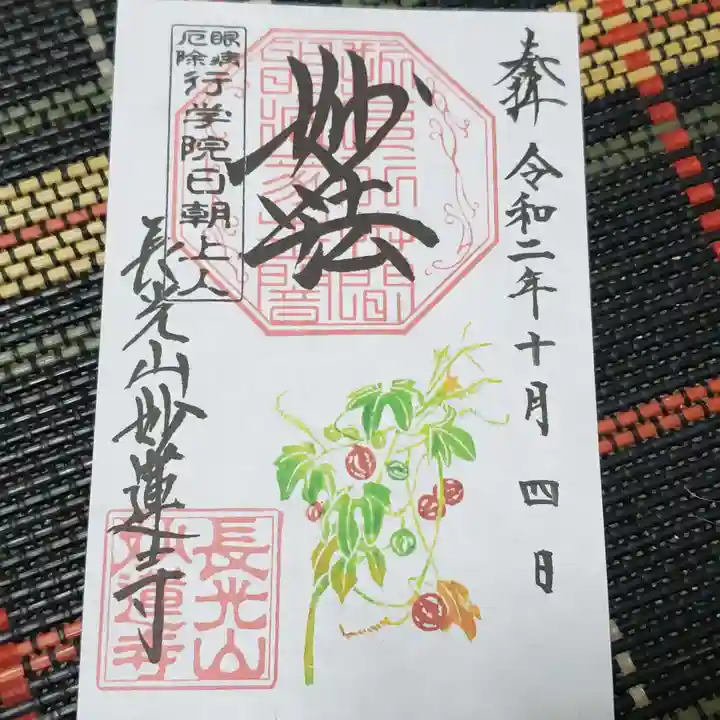 奉拝 令和二年十月四日
妙法
眼病
厄除
行学院日朝上人
長光山妙蓮寺
長光山
妙蓮寺